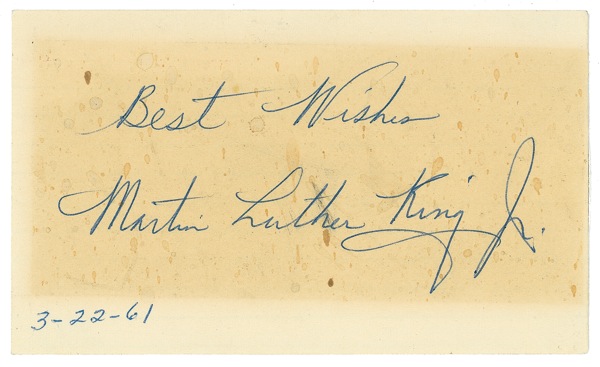 Best Wishes
Martin Luther King Jr.
3-22-61